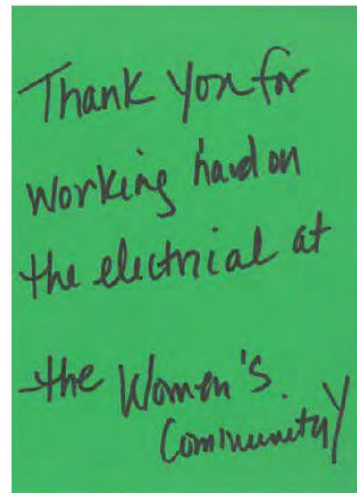 Thank you for
working hard on
the electrical at
the Women's
Community